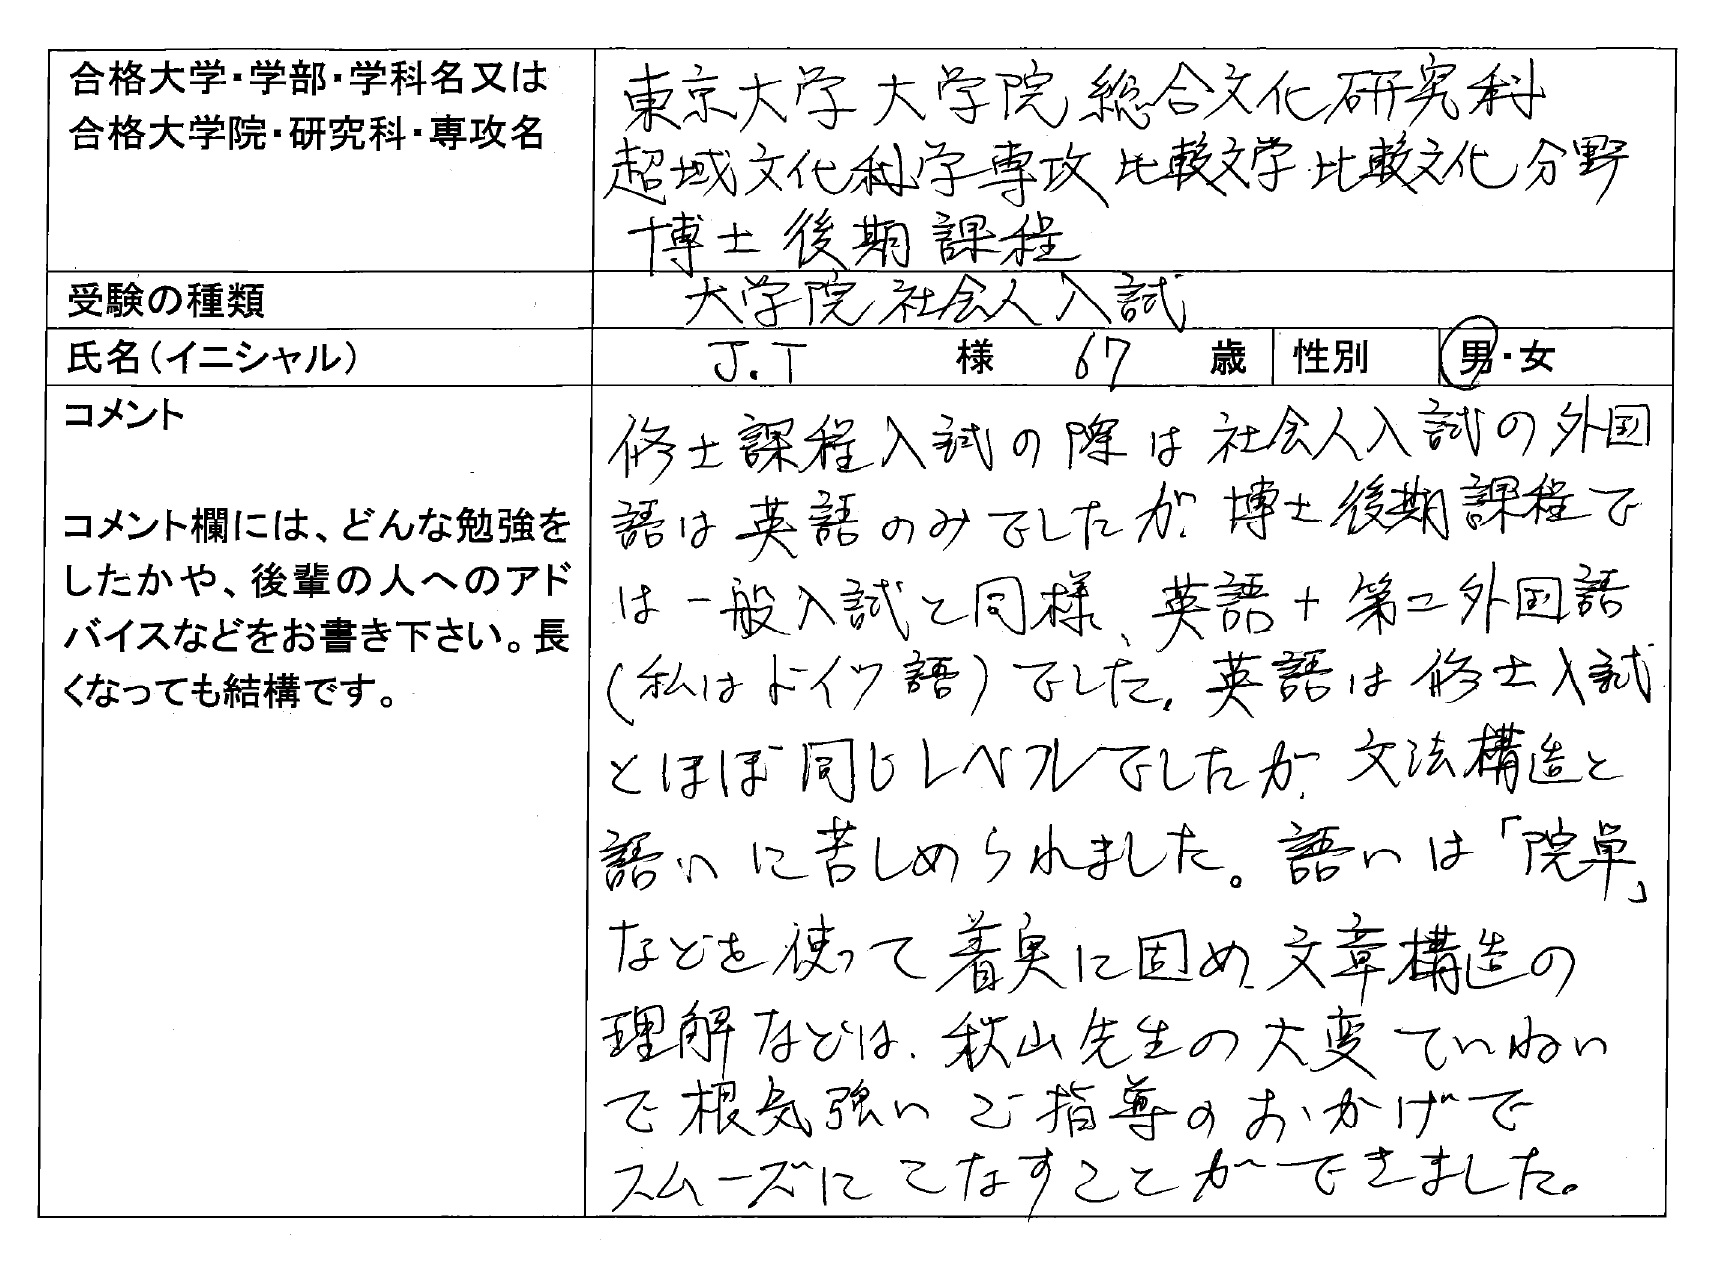 合格大学・学部・学科名又は
合格大学院・研究科・専攻名
東京大学大学院総合文化研究科
超域文化科学専攻比較文学比較文化分野
博士後期課程
受験の種類
大学院社会人入試
氏名(イニシャル)
J.T 様 67 歳 性別 男・女
コメント
コメント欄には、どんな勉強を
したかや、後輩の人へのアド
バイスなどをお書き下さい。長
くなっても結構です。
修士課程入試の際は社会人入試の外国
語は英語のみでしたが、博士後期課程で
は一般入試と同様、英語+第二外国語
(私はドイツ語)でした。英語は修士入試
とほぼ同じレベルでしたが、文法構造と
語いに苦しめられました。語いは「院単」
などを使って着実に固め、文章構造の
理解などは、秋山先生の大変ていねい
で根気強いご指導のおかげで
スムーズにこなすことができました。